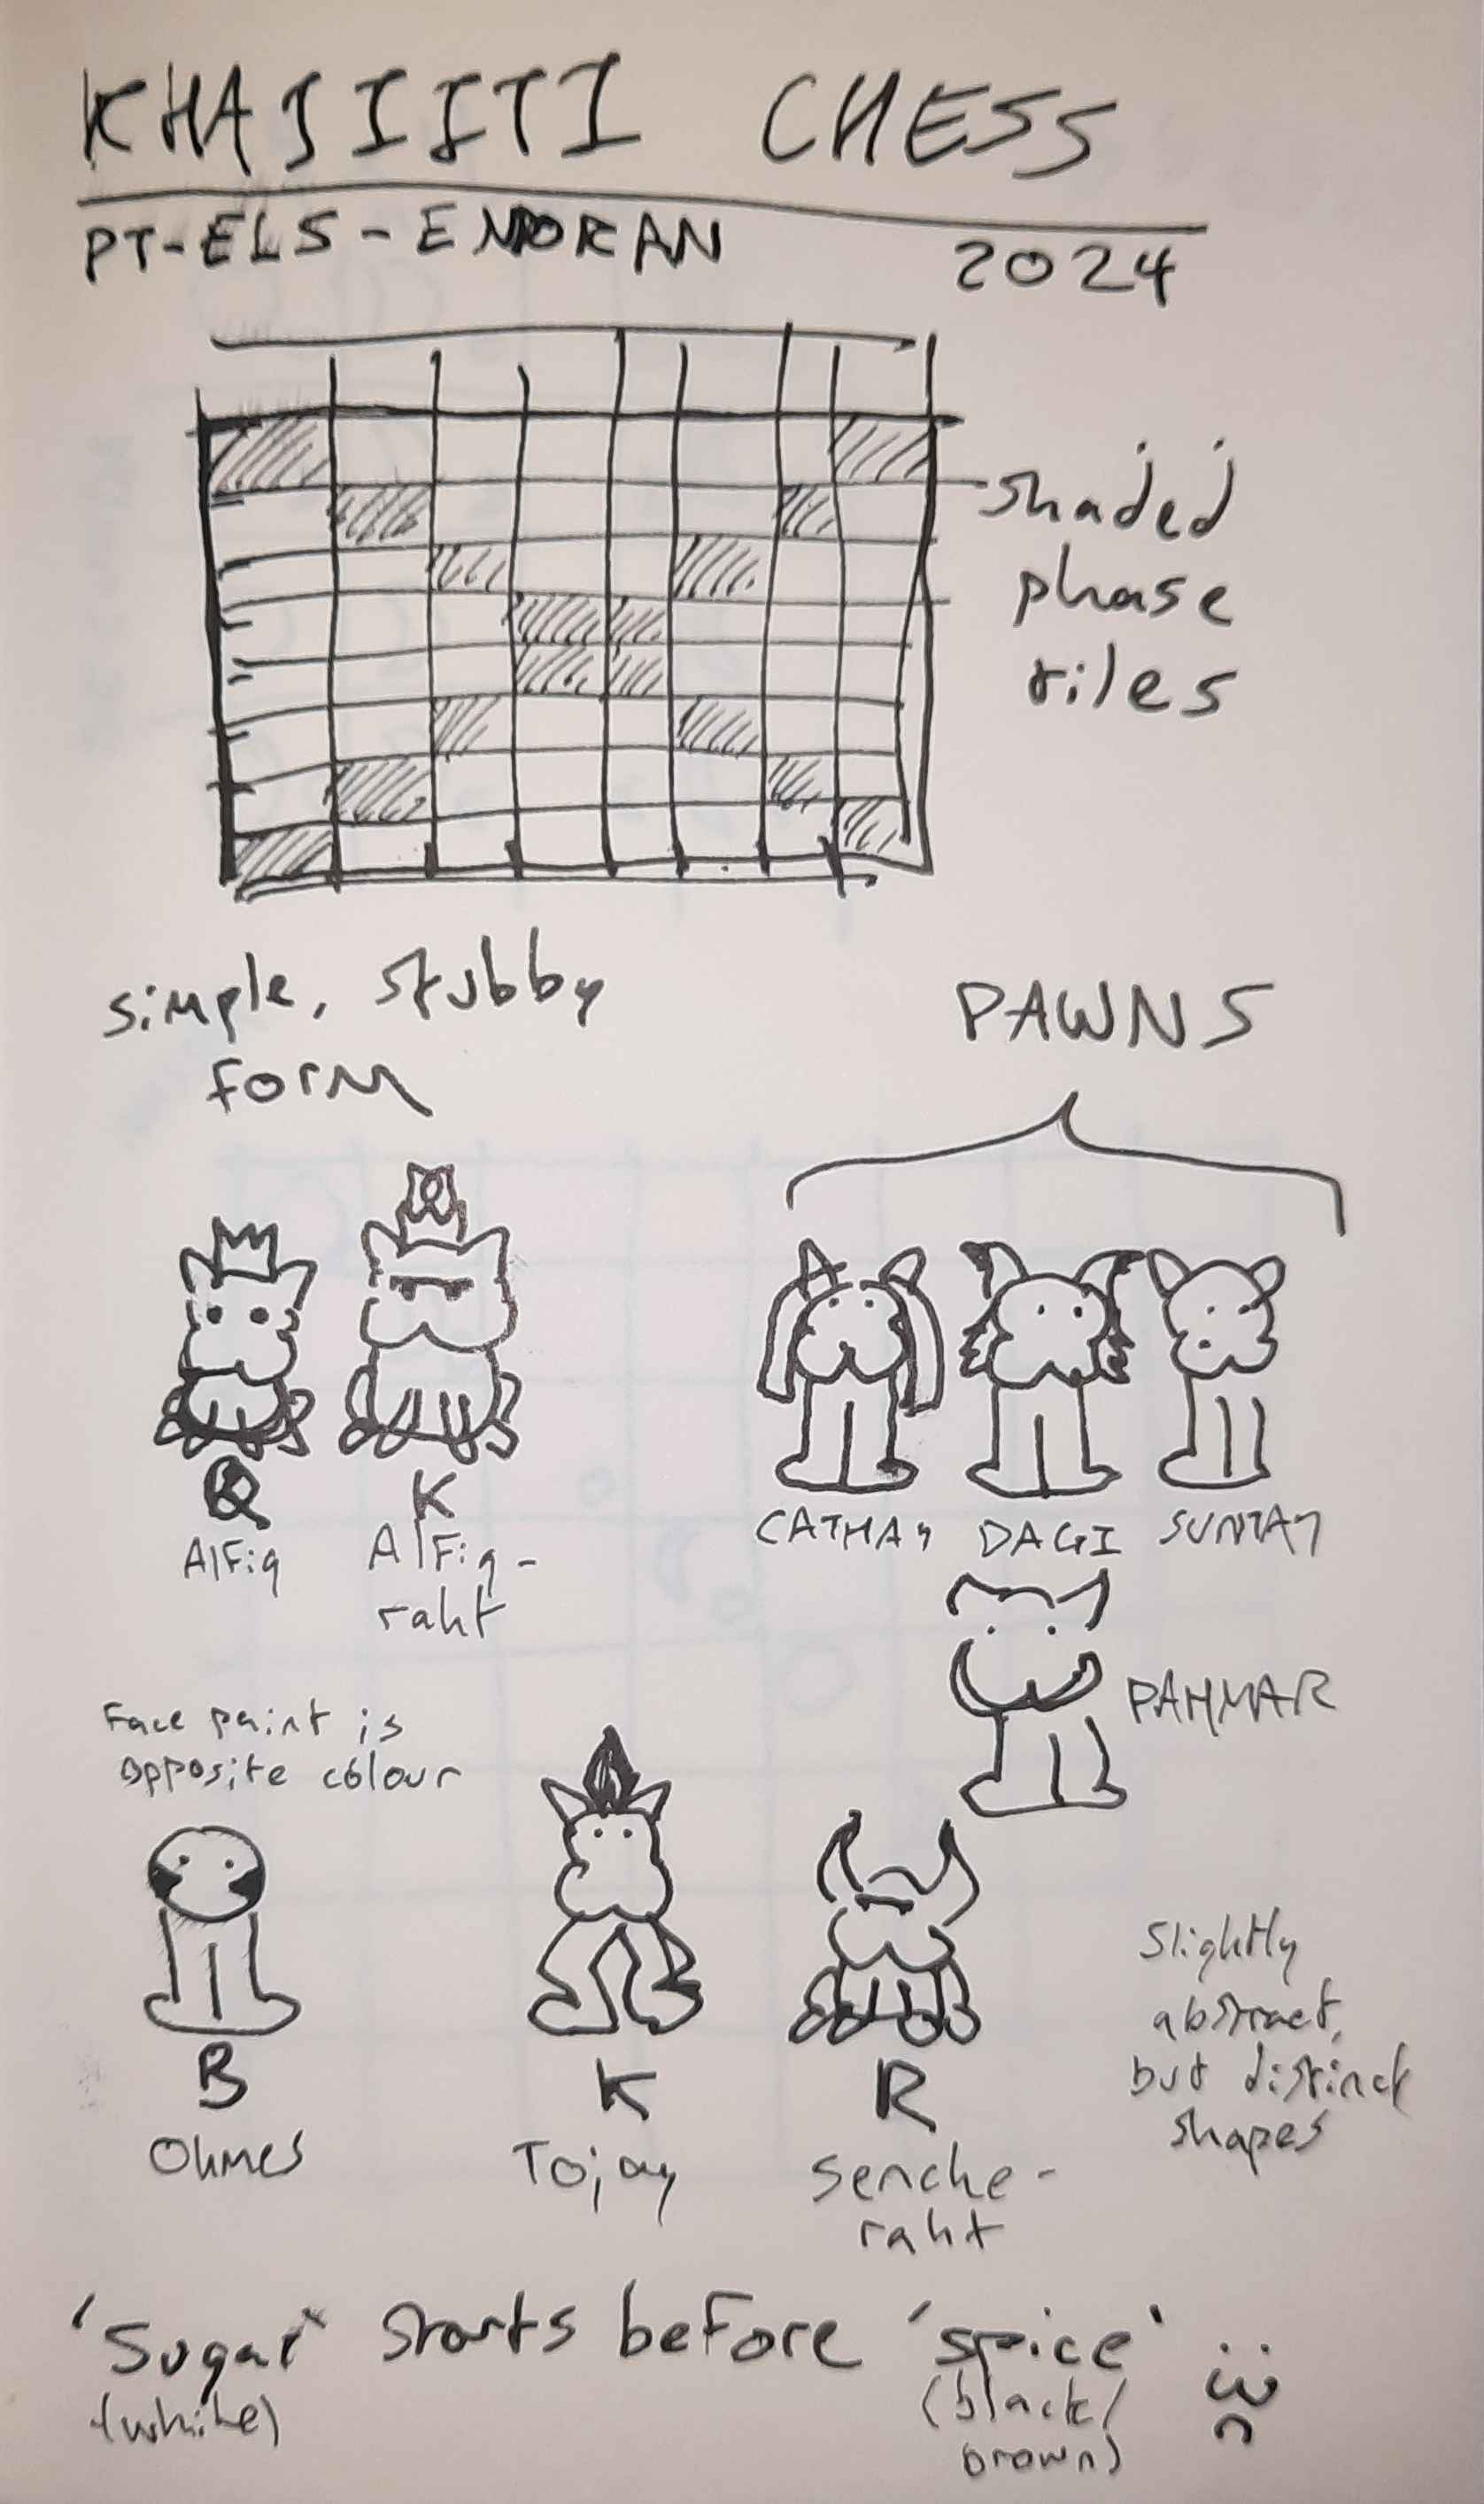 KHAJIITI CHESS
PT-ELS-ENDORAN 2024
shaded
phase
tiles
simple, stubby
form
PAWNS
Q
Alfiq
K
Alfiq-
raht
CATHAY
DAGI
SUNTAY
PAHMAR
Face paint is
opposite colour
B
Ohmes
K
Tojay
R
Senche-
raht
Slightly
abstract,
but distinct
shapes
'Sugar' starts before 'spice' :3
(white)
(black/
brown)